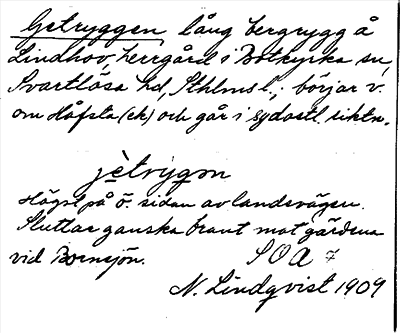 Getryggen, lång bergrygg å
Lindhov, herrgård i Botkyrka sn,
Svartlösa hd, Sthlms l.; börjar v.
om Håfsta (ek) och går i sydostl. riktn.
jètrýgon
Högst på ö. sidan av landsvägen.
Sluttar ganska brant mot gärdena
vid Bornsjön.
SOA 7
N. Lindqvist 1909